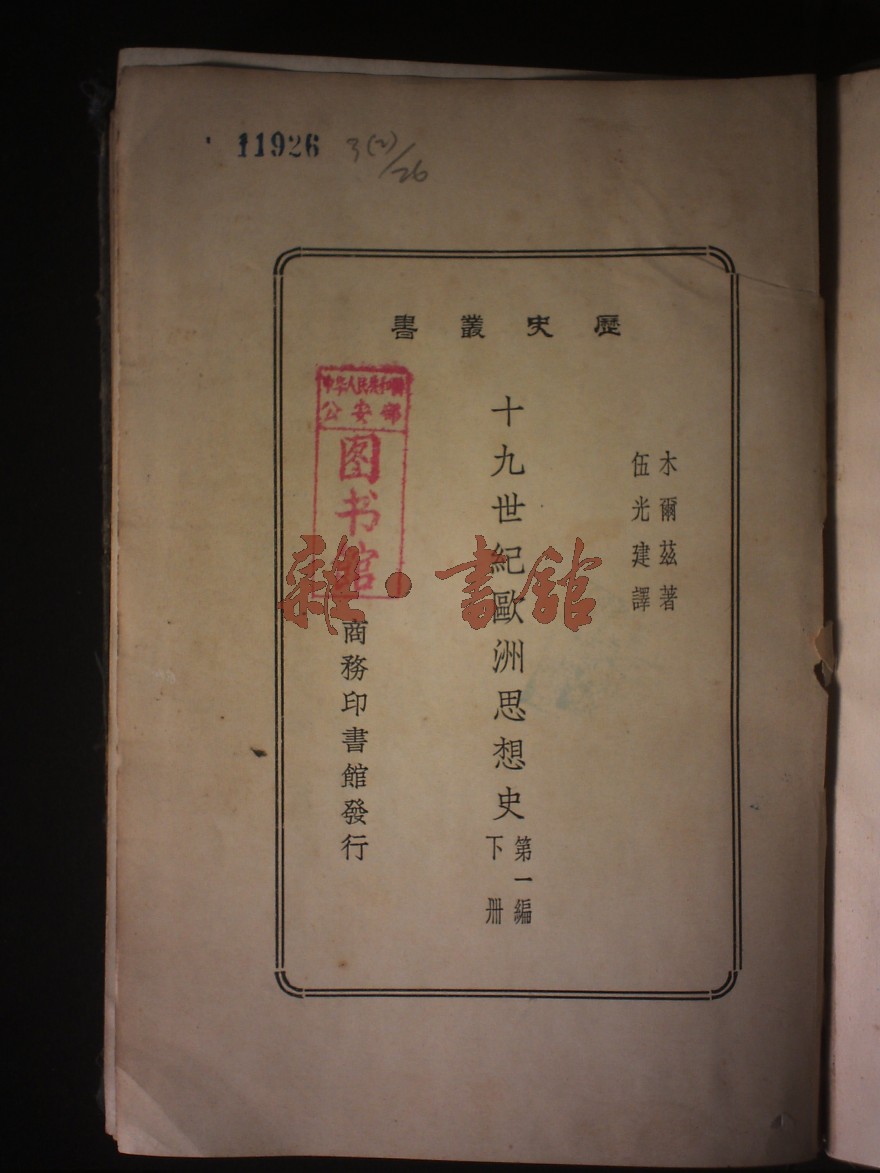 11926 3(2)/26
歷史叢書
木爾茲著
伍光建譯
十九世紀歐洲思想史
第一編
下冊
商務印書館發行
中华人民共和國
公安部
图书馆
雜·書館